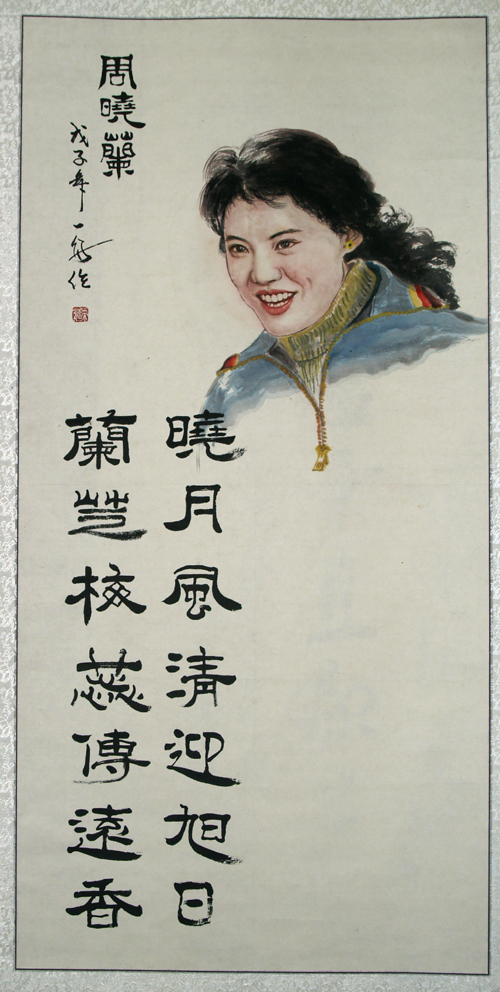 周曉蘭
戊子年一作
曉月風清迎旭日
蘭芝核蕊傳遠香